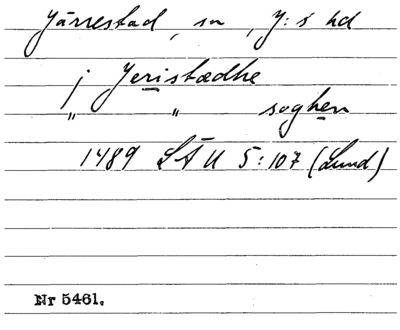 Järrestad, sn, J:s hd
j Jeristædhe
" " soghen
1489 LÄU 5:107 (Lund)
Nr 5461.